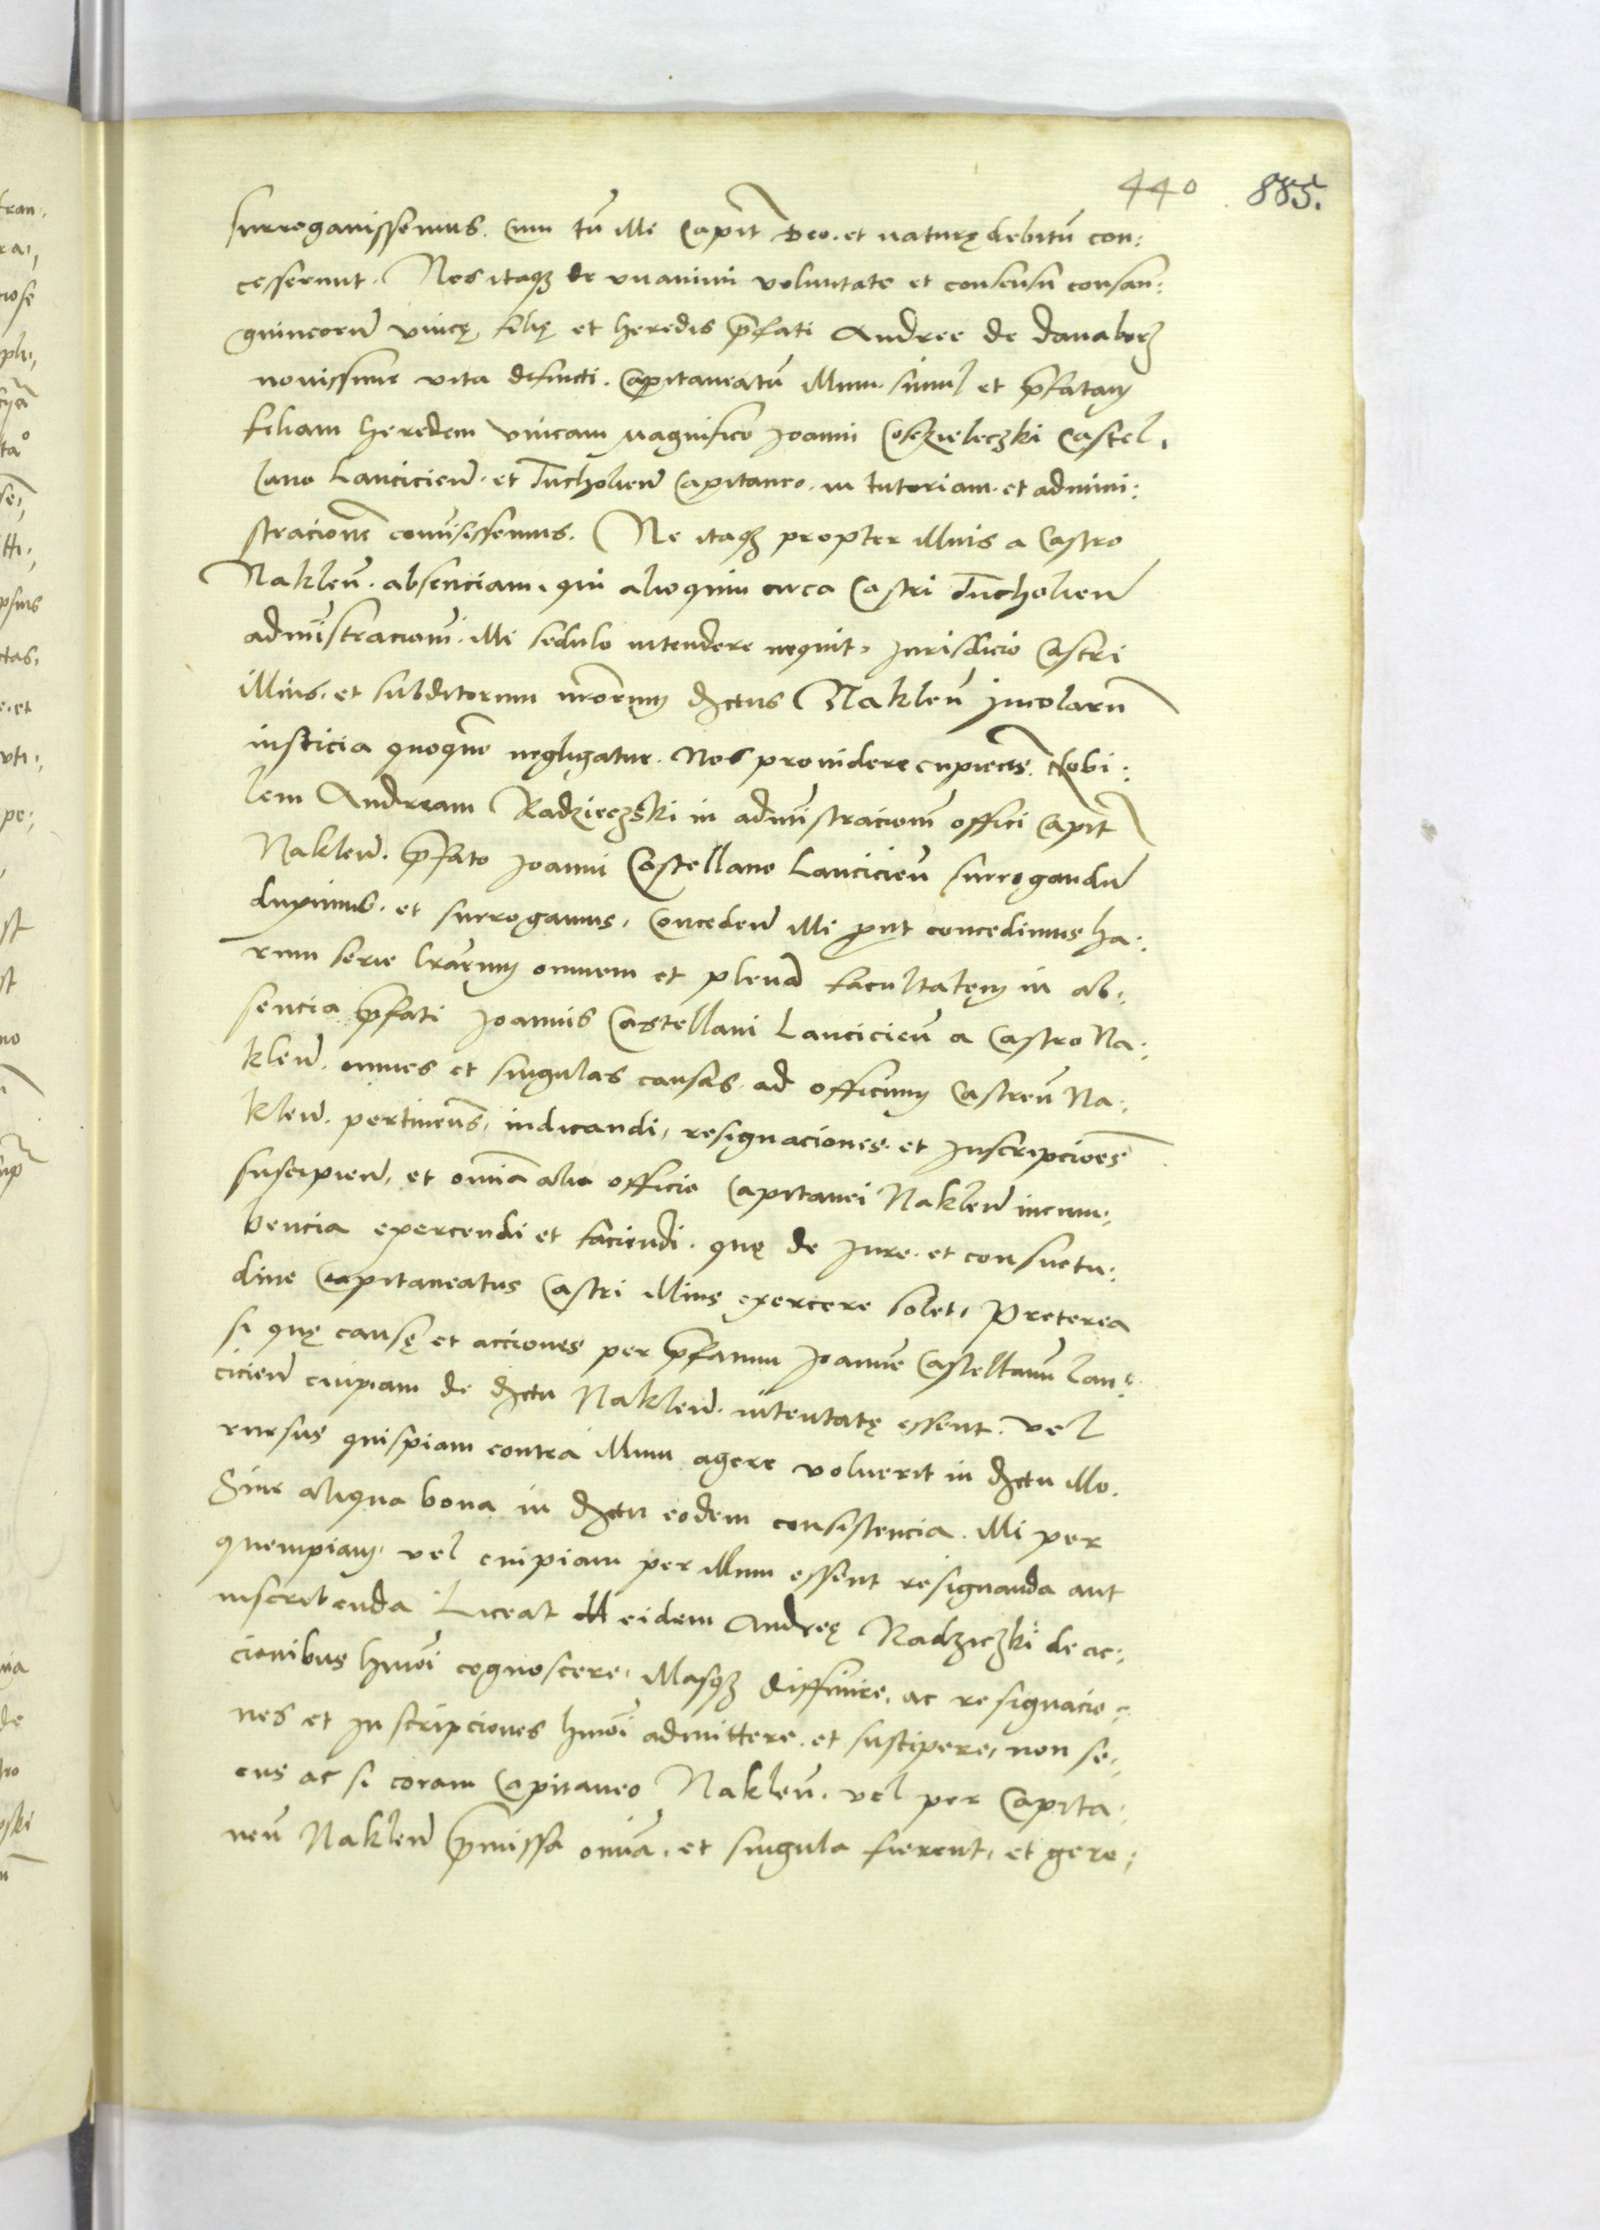 440 885.
surrogauissemus. Cum tñ ille Capit Deo. et naturę debitũ con:
cesserunt. Nos itaqȝ de vnanimi voluntate et consensu consan:
guineorũ vnicę, filię et heredis p̃fati Andree de Danaborȝ
nouissime vita defuncti. Capitaneatũ illum simul et p̃fatam
filiam heredem vnicam magnifico Joanni Cosczieleczki Castel:
lano Lanciciesñ. et Tucholieñ Capitaneo. in tutoriam. et admini:
stracionẽ commisissemus. Ne itaqȝ propter illius a Castro
Nakleñ. absenciam. qui alioquin circa Castri Tucholieñ
administracionẽ. illi sedulo intendere nequit. Jurisdicio Castri
illius. et subditorum nrõrum dȝctus Nakleñ Jncolarũ
iusticia quoqȝ negligatur. Nos prouidere cupientes. Nobi:
lem Andream Radzieczski in administracionẽ officii Capit
Nakleñ. p̃fato Joanni Castellano Lancicieñ surrogandũ
duximus. et surrogamus. Concedeñ illi prout concedimus ha:
rum serie lrãrum omnem et plenã facultatem in ab:
sencia p̃fati Joannis Castellani Lancicieñ a Castro Na:
kleñ. omnes et singulas causas. ad officium Castreñ Na:
kleñ. pertineñs, iudicandi, resignaciones. et Jnscripciões
suscipieñ, et om̃ia alia officio Capitanei Nakleñ incum:
bencia exercendi et faciendi. quę de Jure. et consuetu:
dine Capitaneatus Castri illius exercere solet, Preterea
si quę causę et acciones per p̃fatum Joannẽ Castellanũ Lan:
cicieñ cuipiam de dȝctu Nakleñ. intentatę essent. vel
rursus quispiam contra illum agere voluerit in dȝctu illo.
Siue aliqua bona in dȝctu eodem consistencia. illi per
quempiam. vel cuipiam per illum essent resignanda aut
inscribenda Liceat eidem Andreę Radziczki de ac:
cionibus hmõi cognoscere, illasqȝ diffinire, ac resignacio:
nes et Jnscripciones hmõi admittere. et suscipere, non se:
cus ac si coram Capitaneo Nakleñ. vel per Capita:
neũ Nakleñ p̃missa om̃ia. et singula fierent, et gere: